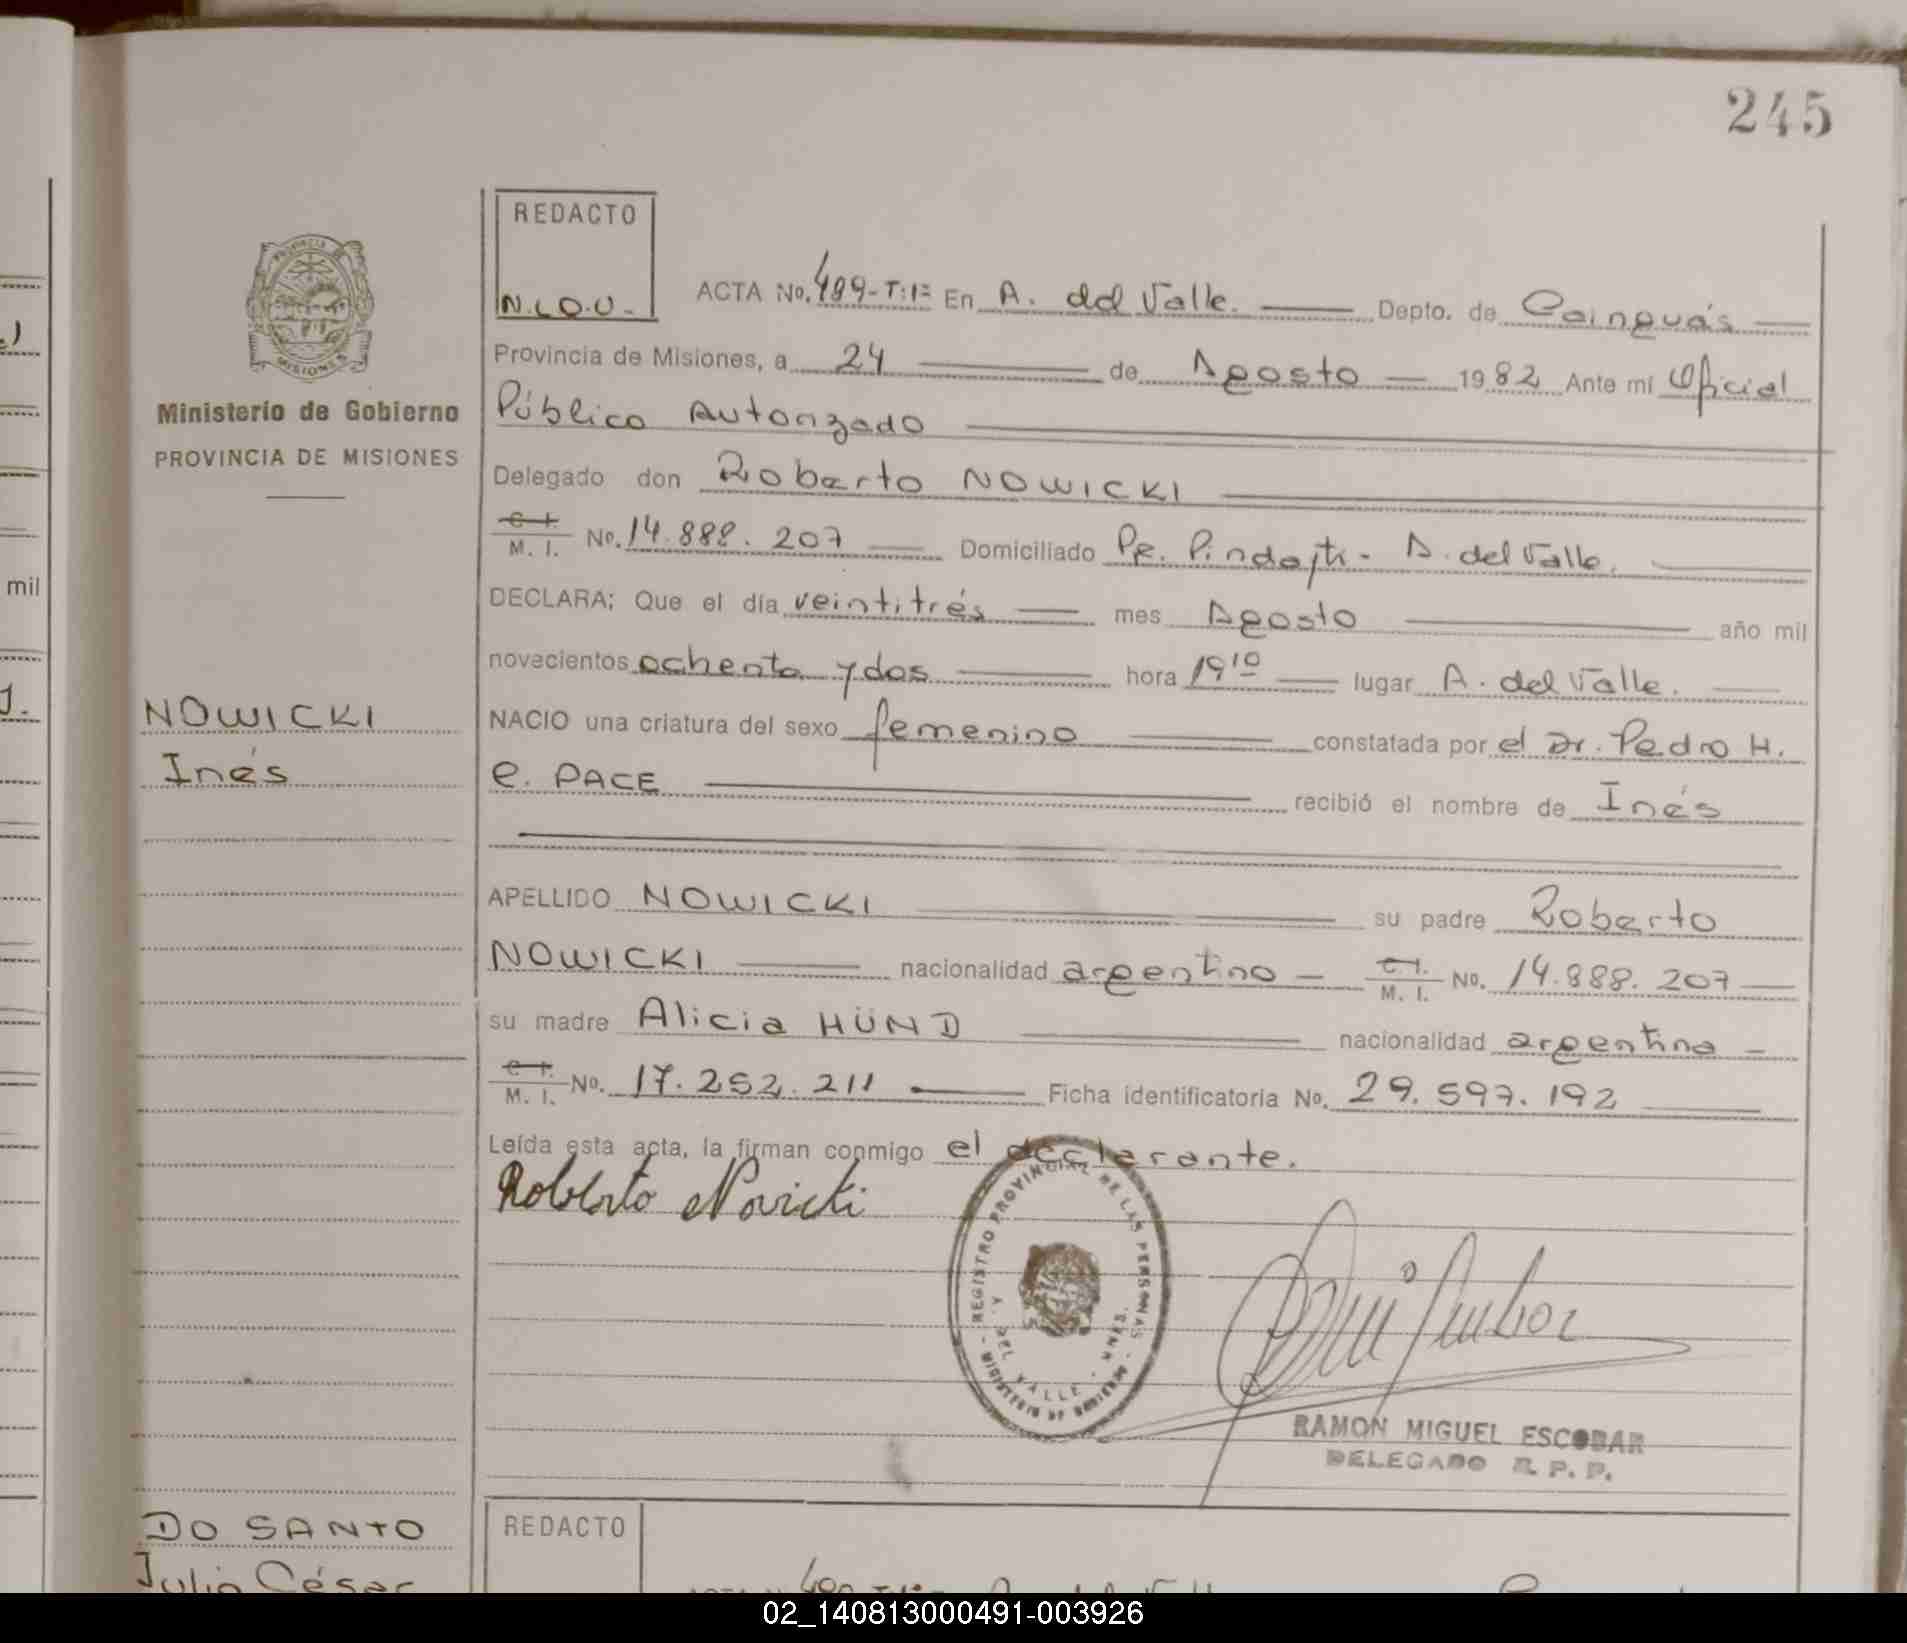 245
REDACTO
N.L.O.U.-
ACTA No. 499-T:1º En A. del Valle. Depto. de Cainguás
Provincia de Misiones, a 24 de Agosto 1982 Ante mí Oficial
Público Autorizado
Delegado don Roberto NOWICKI
C. I.
M. I. No. 14.888.207 Domiciliado Pje. Pindayti - A. del Valle.
DECLARA; Que el día veintitrés mes Agosto año mil
novecientos ochenta y dos hora 19¹⁰ lugar A. del Valle.
NACIO una criatura del sexo femenino constatada por el Dr. Pedro H.
e. PACE recibió el nombre de Inés
APELLIDO NOWICKI su padre Roberto
NOWICKI nacionalidad argentino C. I.
M. I. No. 14.888.207
su madre Alicia HÜND nacionalidad argentina
C. I.
M. I. No. 17.252.211 Ficha identificatoria No. 29.597.192
Leída esta acta, la firman conmigo el declarante.
Roberto Novicki
REGISTRO PROVINCIAL DE LAS PERSONAS
MINISTERIO DE GOBIERNO
DEL VALLE
RAMON MIGUEL ESCOBAR
DELEGADO R. P. P.
PROVINCIA DE
MISIONES
Ministerio de Gobierno
PROVINCIA DE MISIONES
NOWICKI
Inés
DO SANTO
Julio César
REDACTO
mil
02_140813000491-003926